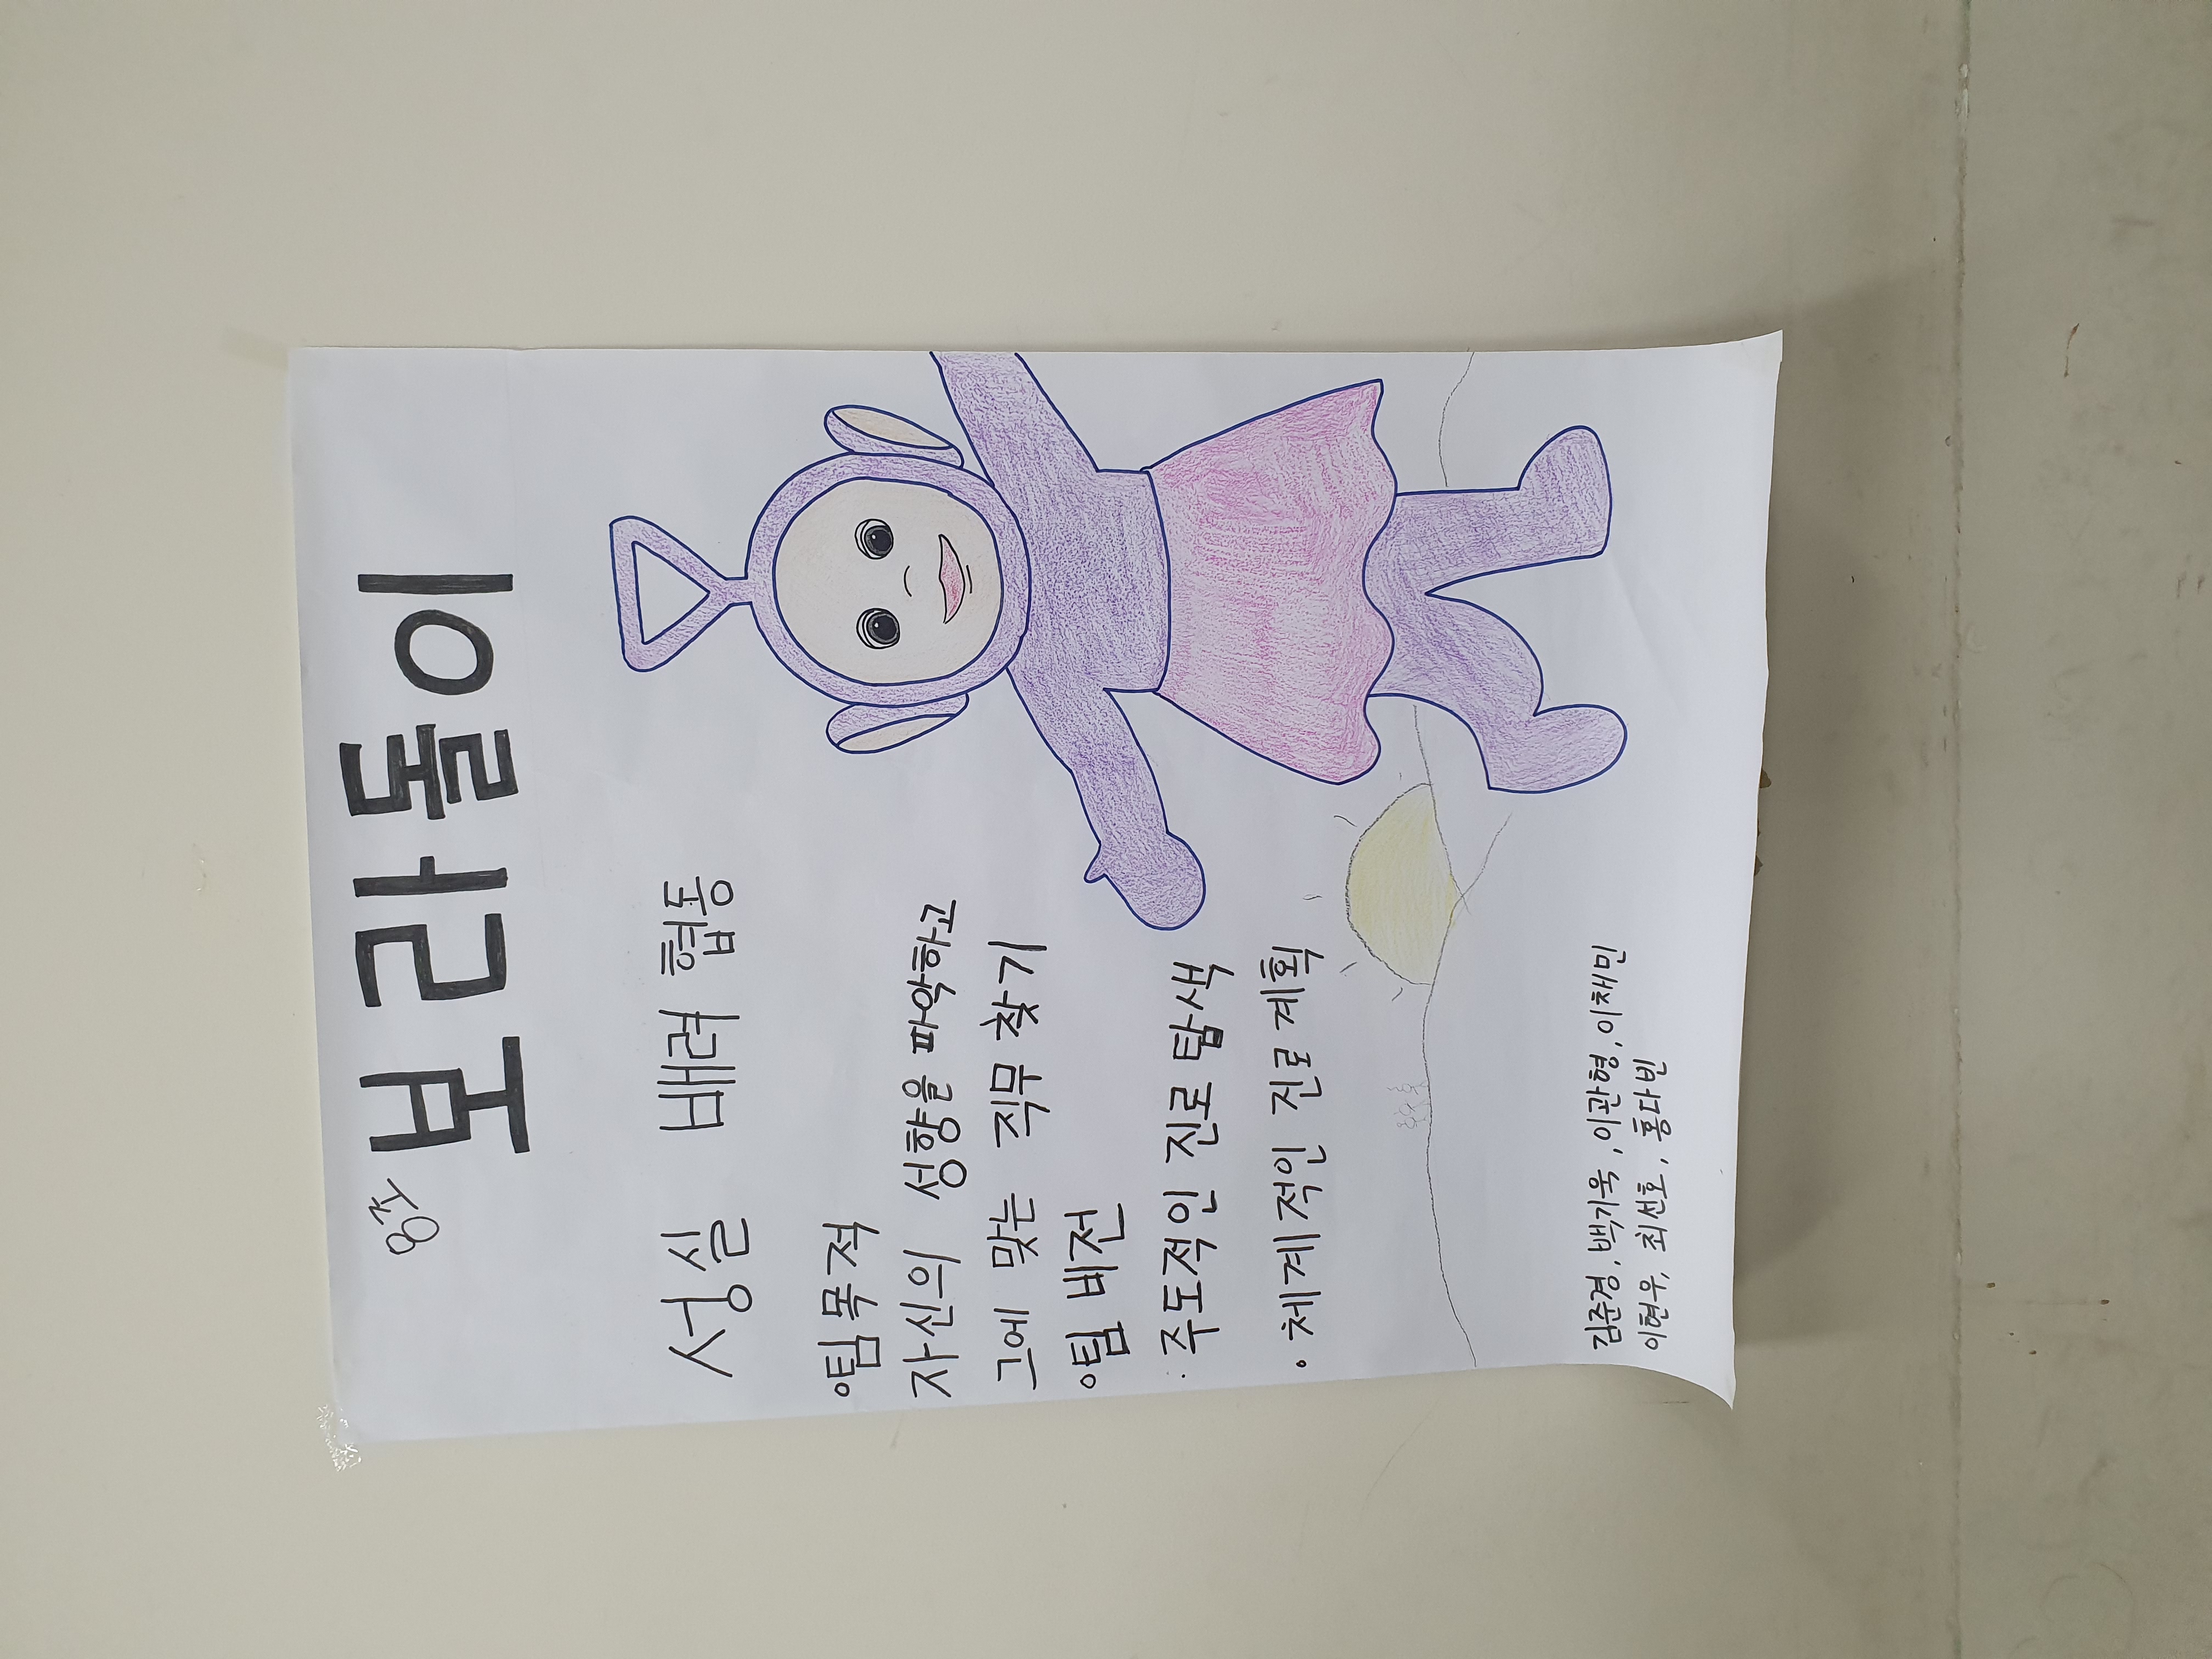 8조 보라돌이
성실 배려 협동
°팀 목적
자신의 성향을 파악하고
그에 맞는 직무 찾기
°팀 비전
· 주도적인 진로 탐색
· 체계적인 진로 계획
김준경, 백기욱, 이관형, 이채민
이현우, 최선호, 홍다빈